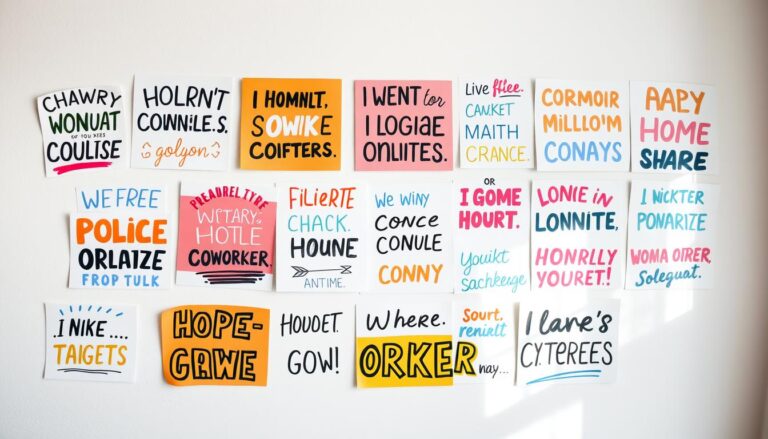 CHAWRY
WONUAT
COULISE
HOLRN'T
CONNILE.S.
golyon
I HOMNLT,
SOWIKE
COIFTERS.
I WENT for
I LOGIAE
ONLIITES.
Live
CAUKET
MAITH
CRANCE.
CORMOIR
MILLO'M
CONAYS
AAPY
HOME
SHARE
WE FREE
POLICE
ORLAIZE
FROP TULK
HOTLE
COWORKER.
FILIERTE
CHACK.
HOUNE
ANTIME.
WE WINY
CONCE
CONULE
CONNY
OR
I GOME
HOURT.
Youikt
LONIE iN
LONNITE,
HONRLLY
YOURET!
I NICKTER
PONARIZE
WOMA ORER,
Soleguat.
.I NIKE....
TAIGETS
HOPE-
GRWE
HOUDET.
GOW!
Where.
ORKER
Sourt.
renizlt
nay...
I lare's
CYTEREES